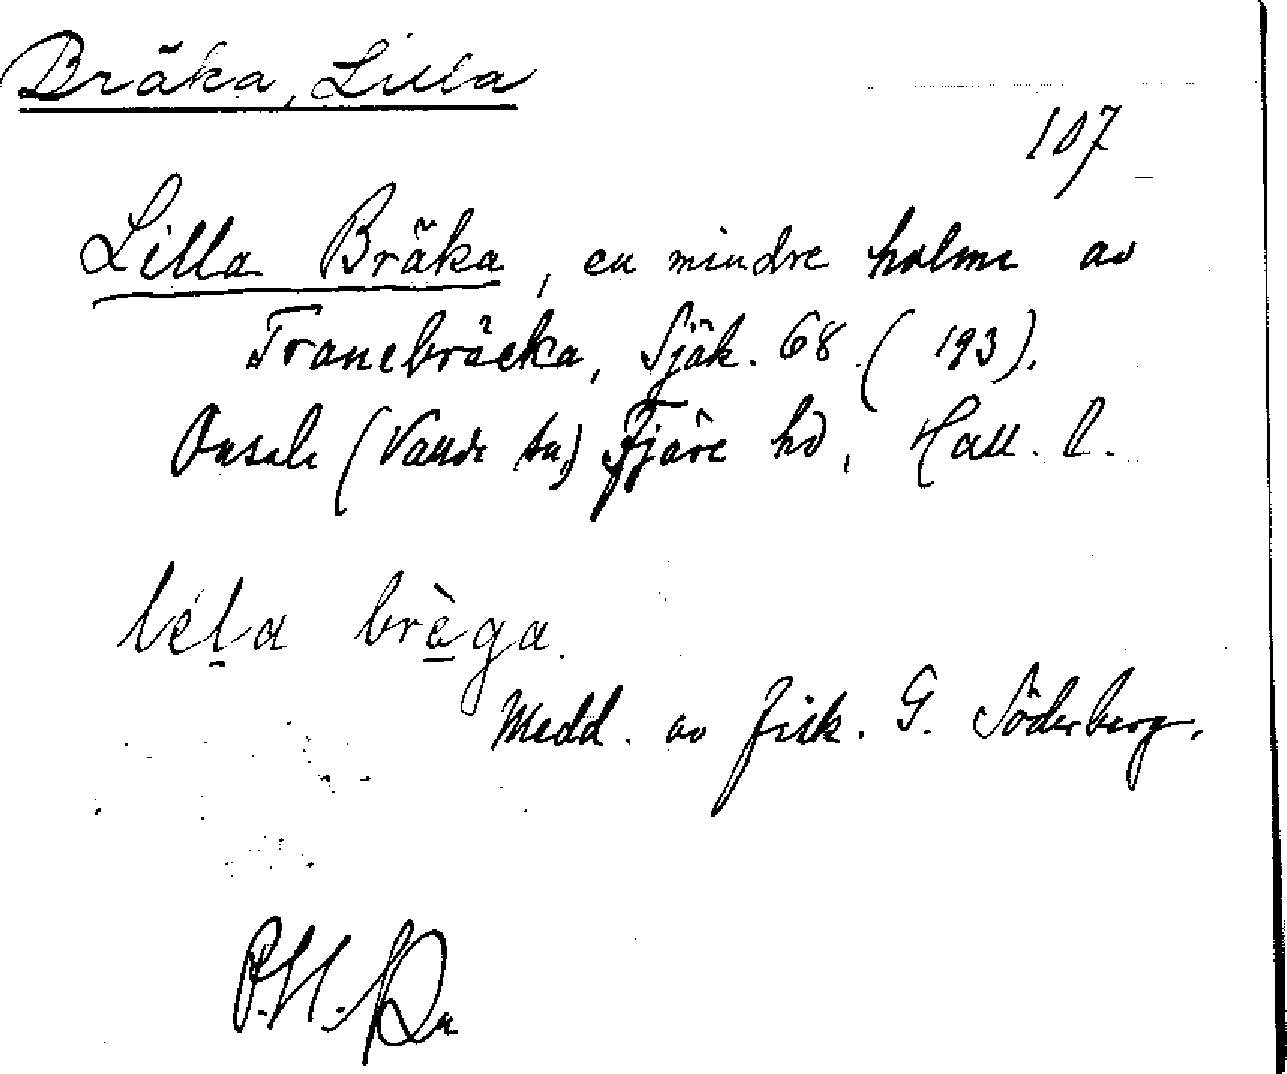 Bräka, Lilla
107
Lilla Bräka, en mindre holme av
Tranebräcka, Sjök. 68 (193).
Onsala (Vallda sn) Fjäre hd, Hall. l.
lela brèga.
Medd. av fisk. G. Söderberg.
P.H.